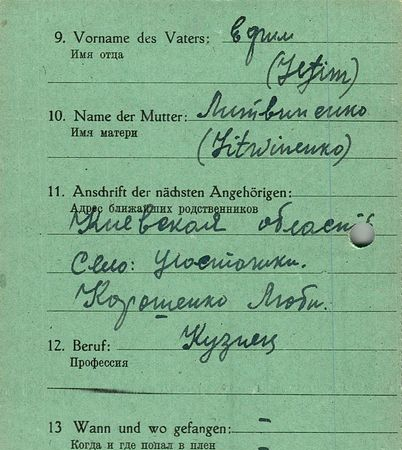 9. Vorname des Vaters: Ефим
Имя отца
(Jefim)
10. Name der Mutter: Литвиненко
Имя матери
(Litwinenko)
11. Anschrift der nächsten Angehörigen:
Адрес ближайших родственников
Киевская область
Село:
Карашенко Люби.
12. Beruf: Кузнец
Профессия
13 Wann und wo gefangen: –
Когда и где попал в плен –